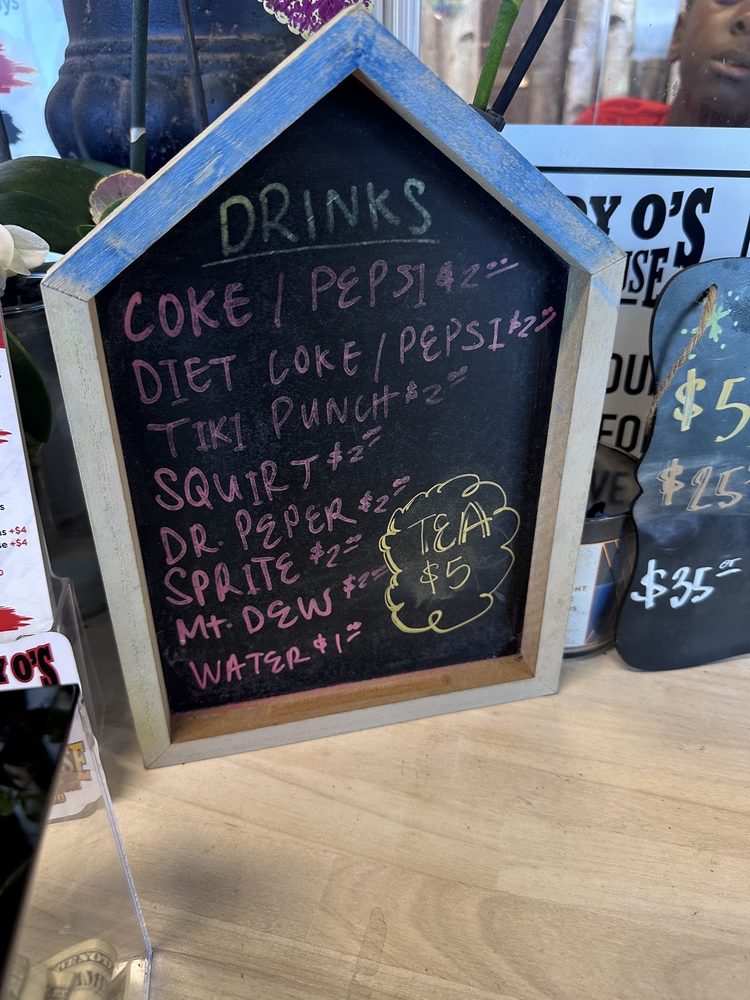 DRINKS
COKE / PEPSI $2.00
DIET COKE/PEPSI $2.00
TIKI PUNCH $2.00
SQUIRT $2.00
DR. PEPER $2.00
SPRITE $2.00
Mt. DEW $2.00
WATER $1.00
TEA
$5
O'S
$5
$25
$35
+$4
+$4
O'S